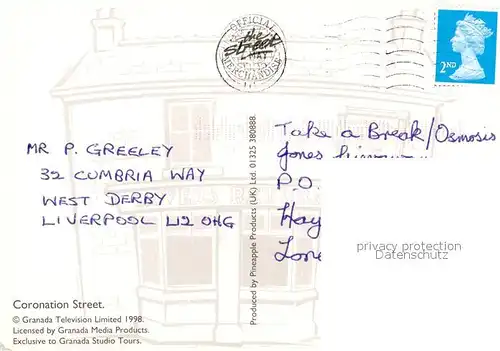 OFFICIAL
the
street
MERCHANDISE
2ND
MR P. GREELEY
32 CUMBRIA WAY
WEST DERBY
LIVERPOOL L12 0HG
Take a Break/Osmosis
Jones
P.O.
Hay
Lon
privacy protection
Datenschutz
Produced by Pineapple Products (UK) Ltd. 01325 380888.
Coronation Street.
© Granada Television Limited 1998.
Licensed by Granada Media Products.
Exclusive to Granada Studio Tours.